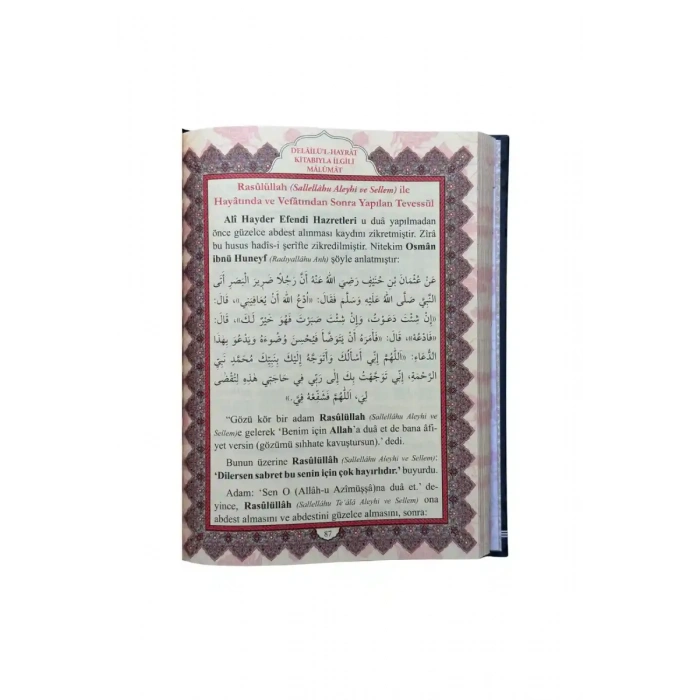 DELÂİLÜ'L-HAYRÂT
KİTABIYLA İLGİLİ
MÂLÛMÂT
Rasûlüllah (Sallellâhu Aleyhi ve Sellem) ile
Hayâtında ve Vefâtından Sonra Yapılan Tevessül
Alî Hayder Efendi Hazretleri u duâ yapılmadan
önce güzelce abdest alınması kaydını zikretmiştir. Zîrâ
bu husus hadîs-i şerîfte zikredilmiştir. Nitekim Osmân
ibnü Huneyf (Radıyallâhu Anh) şöyle anlatmıştır:
عَنْ عُثْمَانَ بْنِ حُنَيْفٍ رَضِيَ اللهُ عَنْهُ أَنَّ رَجُلًا ضَرِيرَ الْبَصَرِ أَتَى
النَّبِيَّ صَلَّى اللهُ عَلَيْهِ وَسَلَّمَ فَقَالَ: «اُدْعُ اللهَ أَنْ يُعَافِيَنِي»، قَالَ:
«إِنْ شِئْتَ دَعَوْتُ، وَإِنْ شِئْتَ صَبَرْتَ فَهُوَ خَيْرٌ لَكَ»، قَالَ:
«فَادْعُهْ»، قَالَ: «فَأَمَرَهُ أَنْ يَتَوَضَّأَ فَيُحْسِنَ وُضُوءَهُ وَيَدْعُوَ بِهٰذَا
الدُّعَاءِ: «اَللّٰهُمَّ إِنِّي أَسْأَلُكَ وَأَتَوَجَّهُ إِلَيْكَ بِنَبِيِّكَ مُحَمَّدٍ نَبِيِّ
الرَّحْمَةِ، إِنِّي تَوَجَّهْتُ بِكَ إِلَى رَبِّي فِي حَاجَتِي هٰذِهِ لِتُقْضَى
لِي، اَللّٰهُمَّ فَشَفِّعْهُ فِيَّ.»
"Gözü kör bir adam Rasûlüllah (Sallellâhu Aleyhi ve
Sellem)e gelerek 'Benim için Allah'a duâ et de bana âfi-
yet versin (gözümü sıhhate kavuştursun).' dedi.
Bunun üzerine Rasûlüllâh (Sallellâhu Aleyhi ve Sellem):
'Dilersen sabret bu senin için çok hayırlıdır.' buyurdu.
Adam: 'Sen O (Allâh-u Azîmüşşâ)na duâ et.' de-
yince, Rasûlüllâh (Sallellâhu Te'âlâ Aleyhi ve Sellem) ona
abdest almasını ve abdestini güzelce almasını, sonra:
87